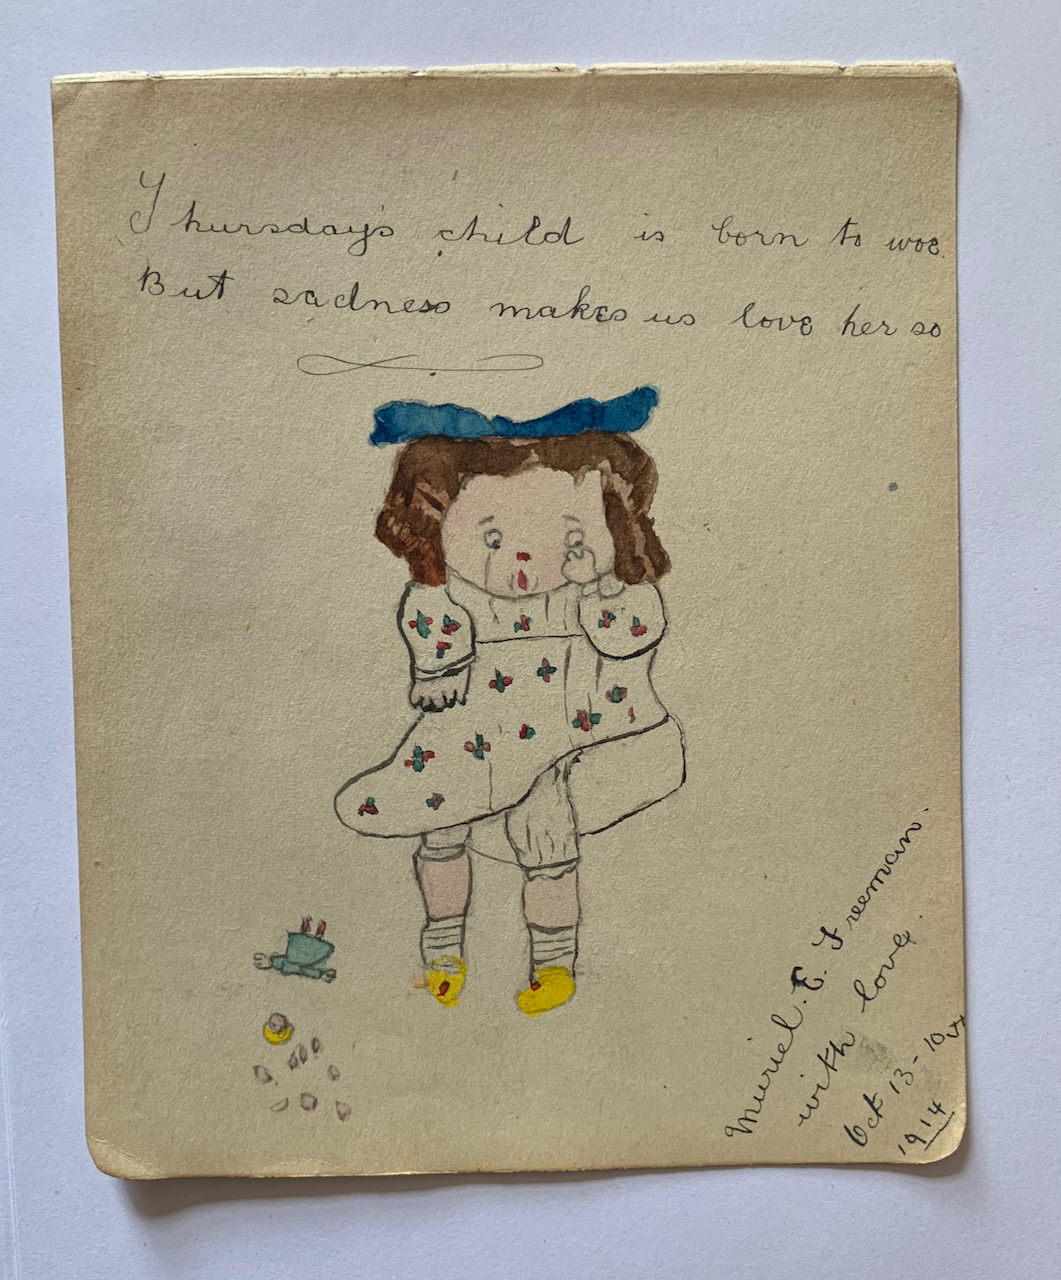 Thursday's child is born to woe.
But sadness makes us love her so
Muriel. E. Freeman.
with love.
Oct 13-10th
1914